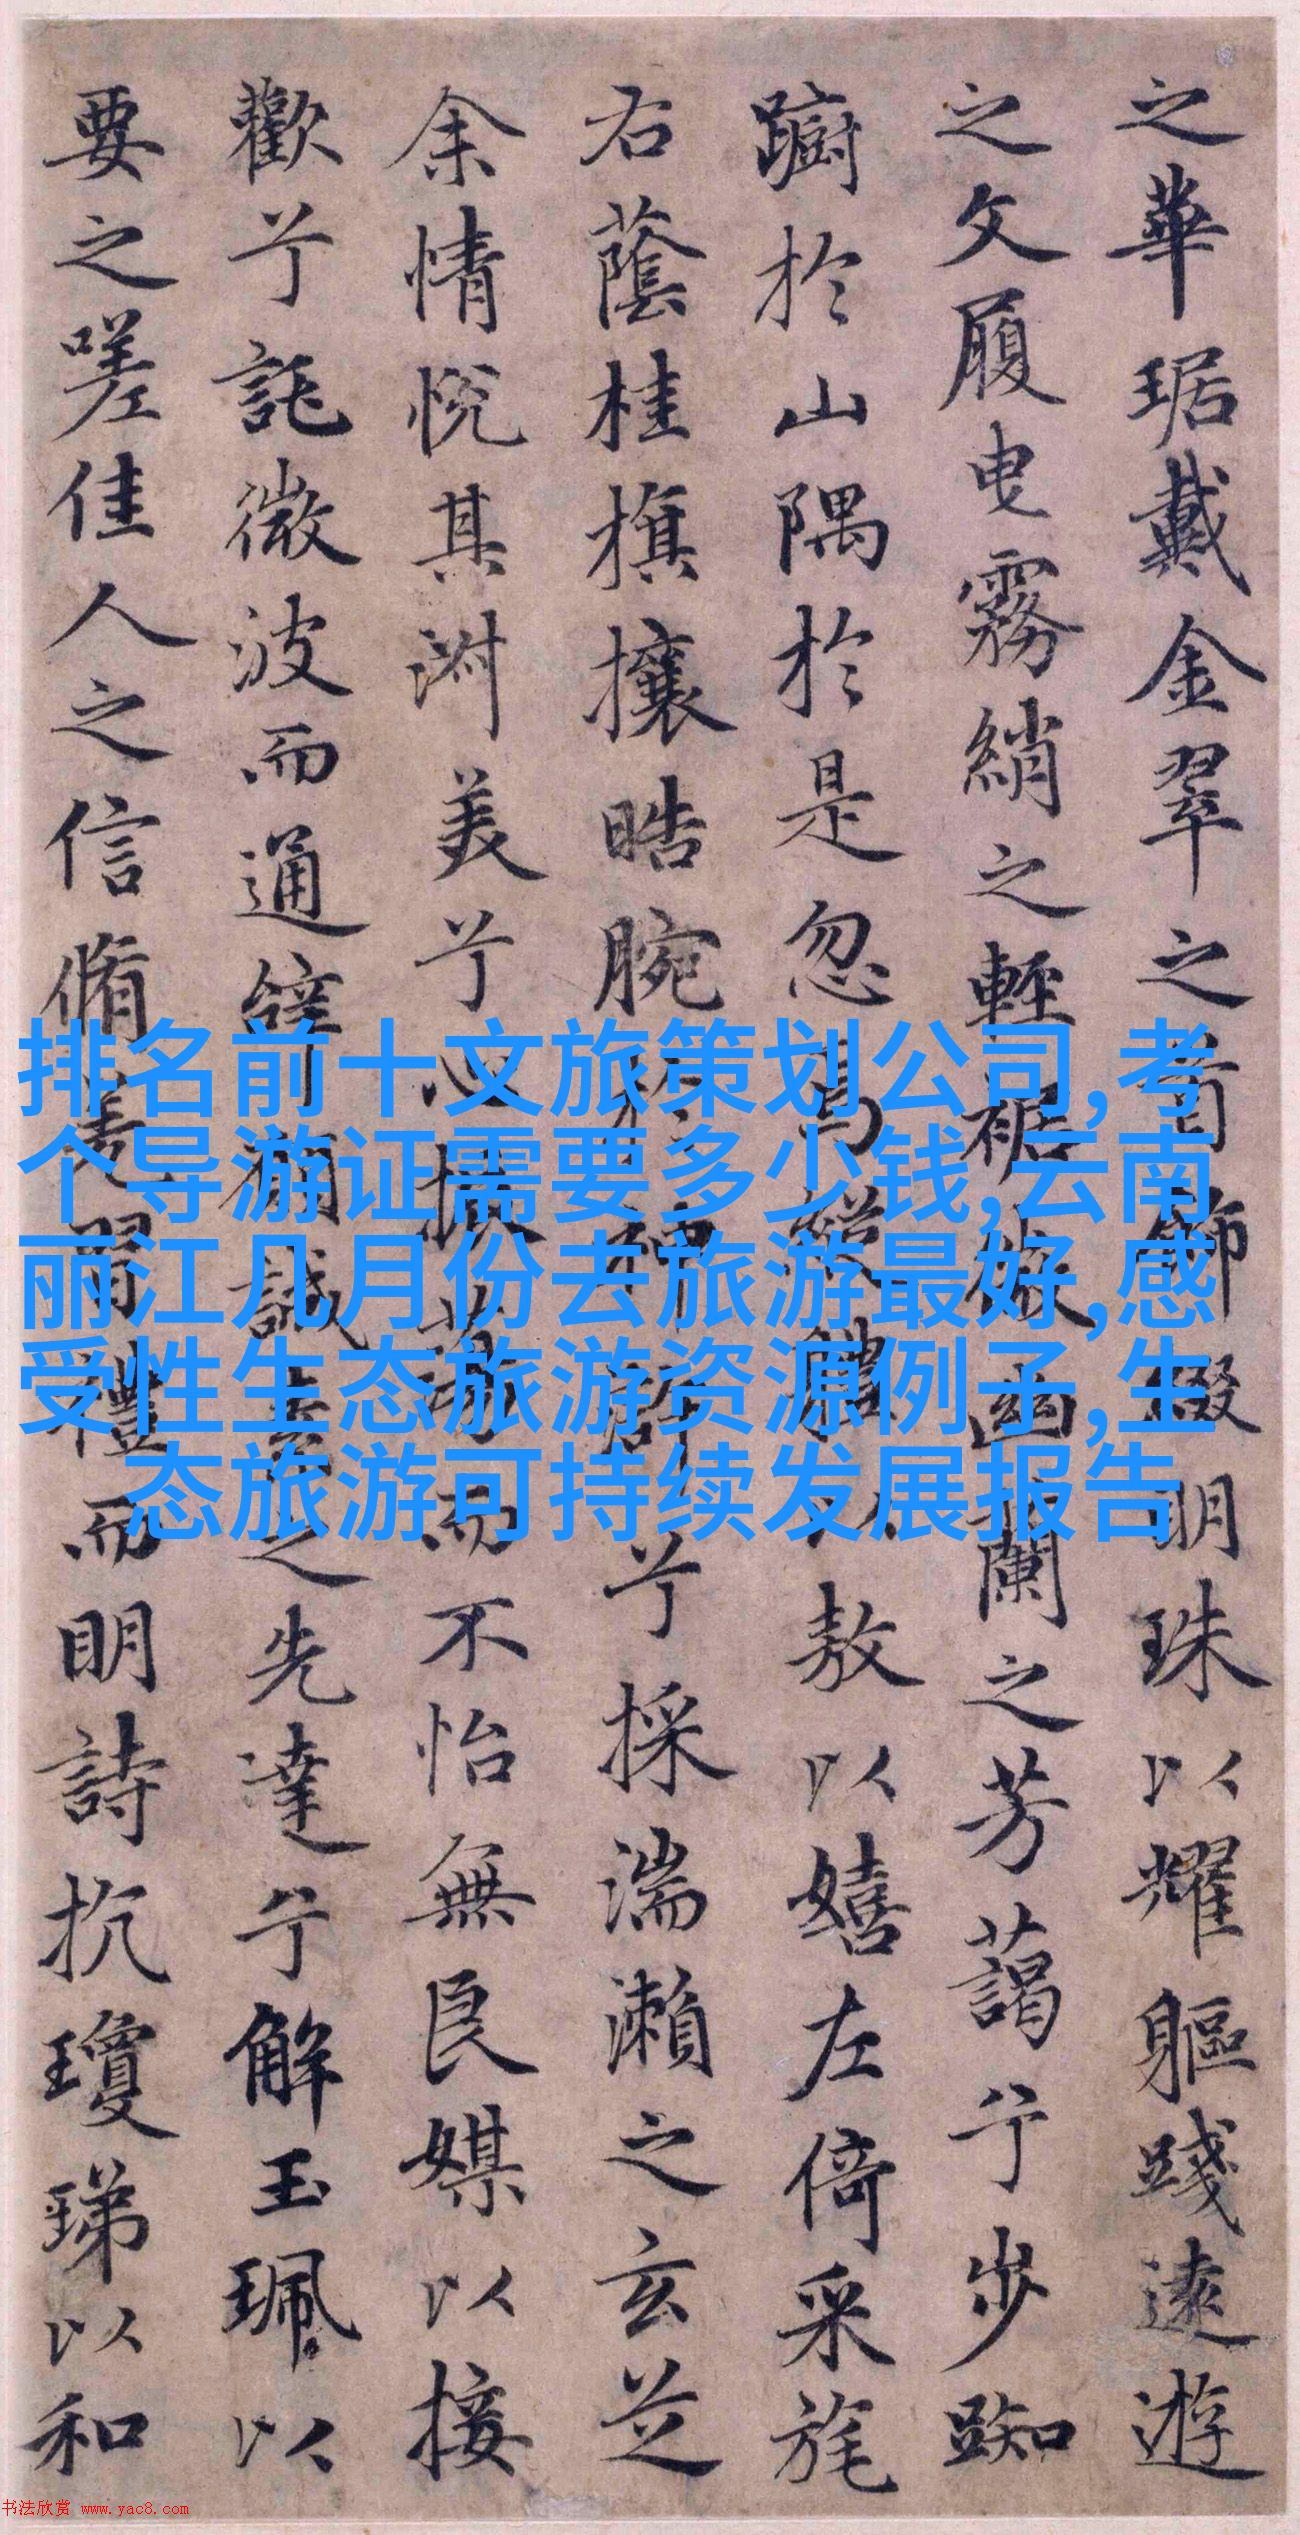 之華琚戴金翠之首飾綴明珠以耀軀踐遠遊
之文履曳霧綃之輕裾微幽蘭之芳藹兮步踟
躕於山隅於是忽焉縱體以敖以嬉左倚采旄
右蔭桂旗攘皓腕於神滸兮採湍瀨之玄芝
余情悅其淑美兮心振蕩而不怡無良媒以接
歡兮託微波而通辭願誠素之先達兮解玉珮以
要之嗟佳人之信脩羌習禮而明詩抗瓊珶以和
排名前十文旅策划公司,考
个导游证需要多少钱,云南
丽江几月份去旅游最好,感
受性生态旅游资源例子,生
态旅游可持续发展报告
书法欣赏 www.yac8.com